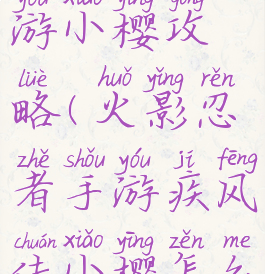 yóu xiǎo yīng gōng
游小樱攻
lüè huǒ yǐng rěn
略(火影忍
zhě shǒu yóu jí fēng
者手游疾风
chuán xiǎo yīng zěn me
传小樱怎么